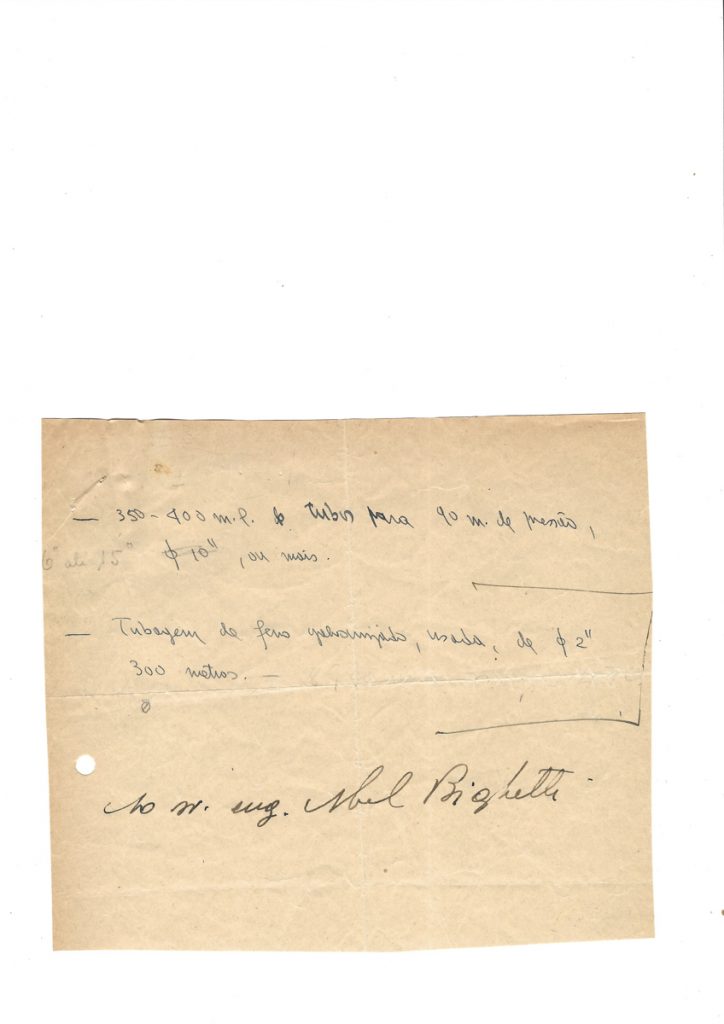 — 350-400 m.l. de tubos para 90 m. de pressão,
6" até 15" ø 10", ou mais.
— Tubagem de ferro galvanizado, usada, de ø 2"
300 metros. —
Ao sr. eng. Abel Bighetti